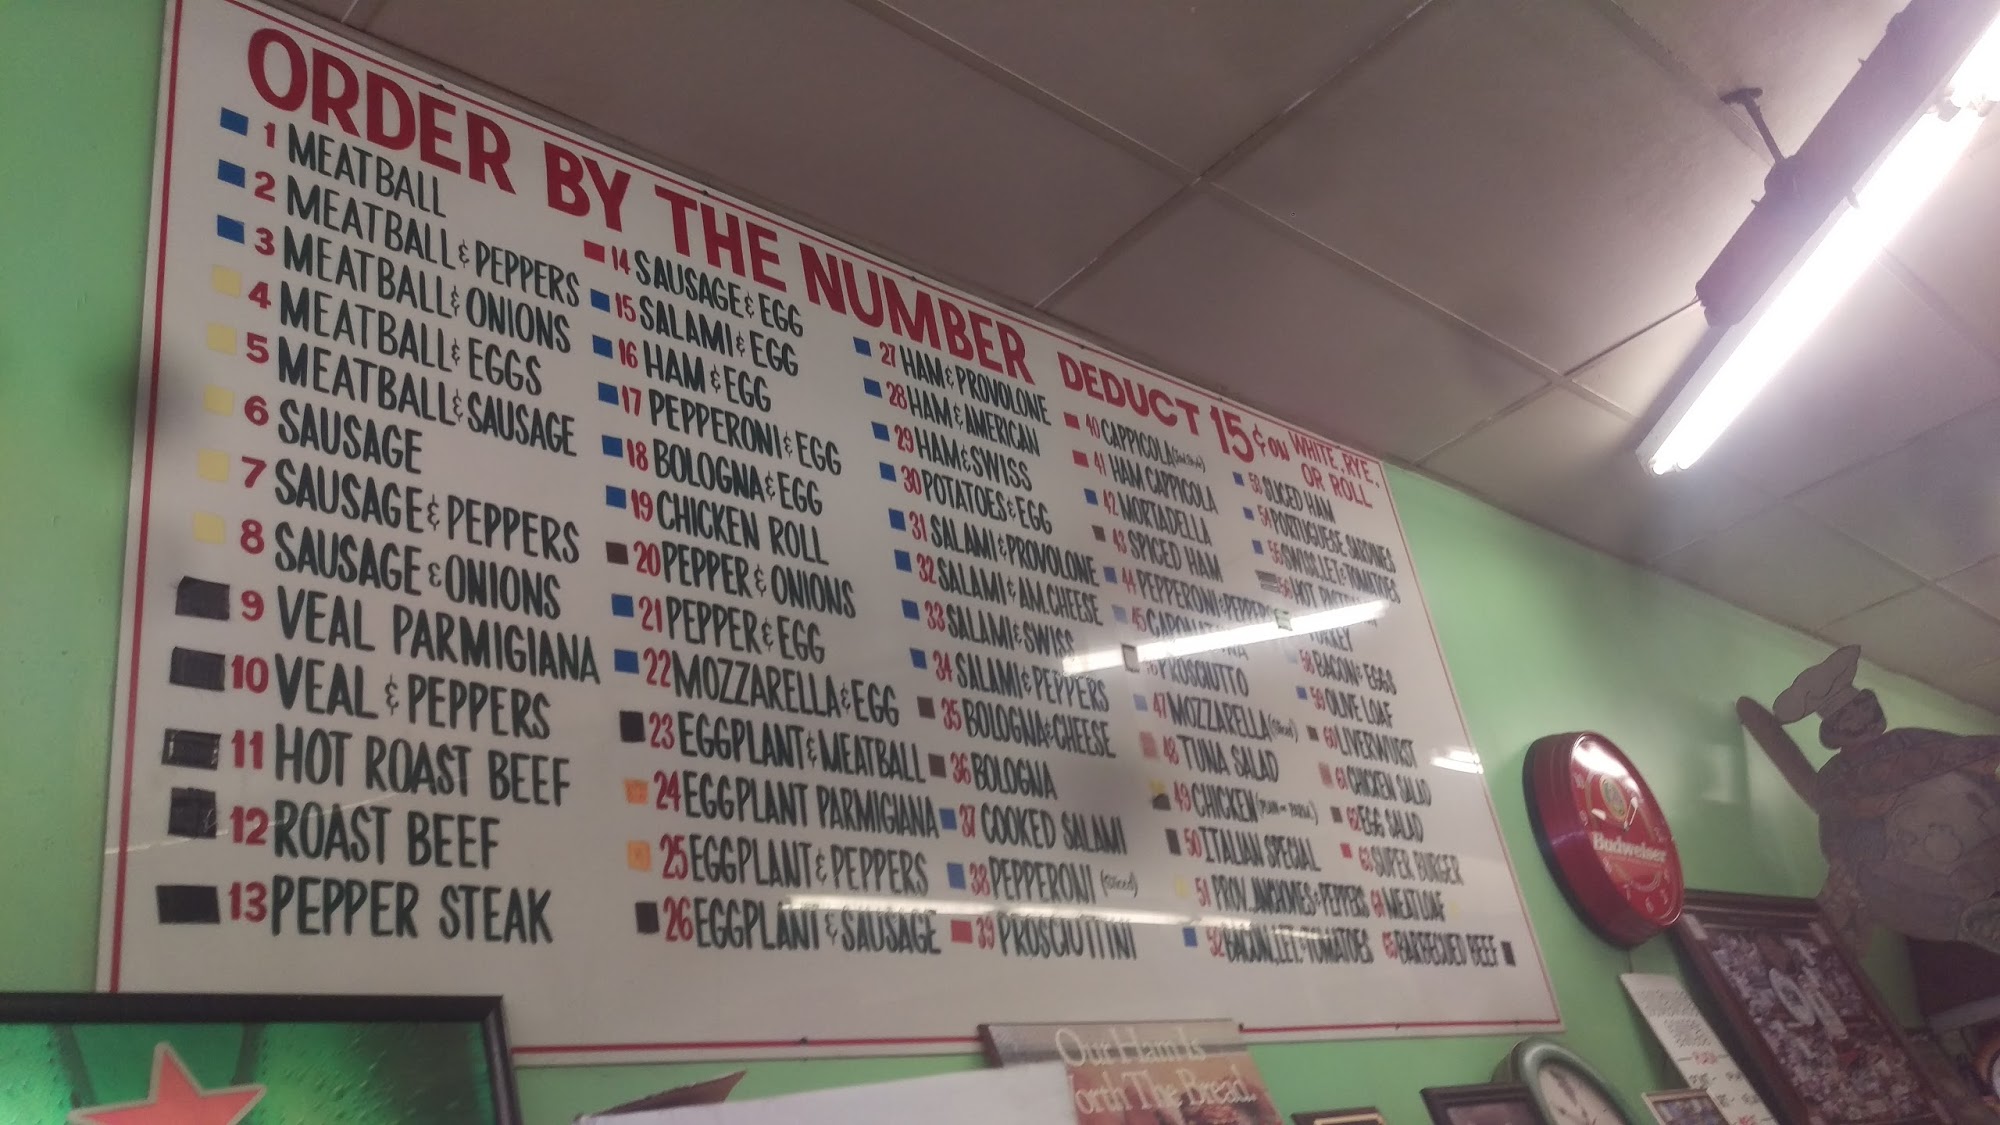 ORDER BY THE NUMBER DEDUCT 15¢ ON WHITE, RYE, OR ROLL
1 MEATBALL
2 MEATBALL & PEPPERS
3 MEATBALL & ONIONS
4 MEATBALL & EGGS
5 MEATBALL & SAUSAGE
6 SAUSAGE
7 SAUSAGE & PEPPERS
8 SAUSAGE & ONIONS
9 VEAL PARMIGIANA
10 VEAL & PEPPERS
11 HOT ROAST BEEF
12 ROAST BEEF
13 PEPPER STEAK
14 SAUSAGE & EGG
15 SALAMI & EGG
16 HAM & EGG
17 PEPPERONI & EGG
18 BOLOGNA & EGG
19 CHICKEN ROLL
20 PEPPER & ONIONS
21 PEPPER & EGG
22 MOZZARELLA & EGG
23 EGGPLANT & MEATBALL
24 EGGPLANT PARMIGIANA
25 EGGPLANT & PEPPERS
26 EGGPLANT & SAUSAGE
27 HAM & PROVOLONE
28 HAM & AMERICAN
29 HAM & SWISS
30 POTATOES & EGG
31 SALAMI & PROVOLONE
32 SALAMI & AM. CHEESE
33 SALAMI & SWISS
34 SALAMI & PEPPERS
35 BOLOGNA & CHEESE
36 BOLOGNA
37 COOKED SALAMI
38 PEPPERONI (Sliced)
39 PROSCIUTTINI
40 CAPPICOLA
41 HAM CAPPICOLA
42 MORTADELLA
43 SPICED HAM
44 PEPPERONI & PEPPERS
45
46 PROSCIUTTO
47 MOZZARELLA (Sliced)
48 TUNA SALAD
49 CHICKEN
50 ITALIAN SPECIAL
51 PROV., ANCHOVIES & PEPPERS
52 BACON, LET. & TOMATOES
53 SLICED HAM
54 PORTUGUESE SARDINES
55 SWISS, LET. & TOMATOES
56 HOT
58 BACON & EGGS
59 OLIVE LOAF
60 LIVERWURST
61 CHICKEN SALAD
62 EGG SALAD
63 SUPER BURGER
64 MEATLOAF
65 BARBECUED BEEF
Budweiser
Our Ham Is
Worth The Bread.